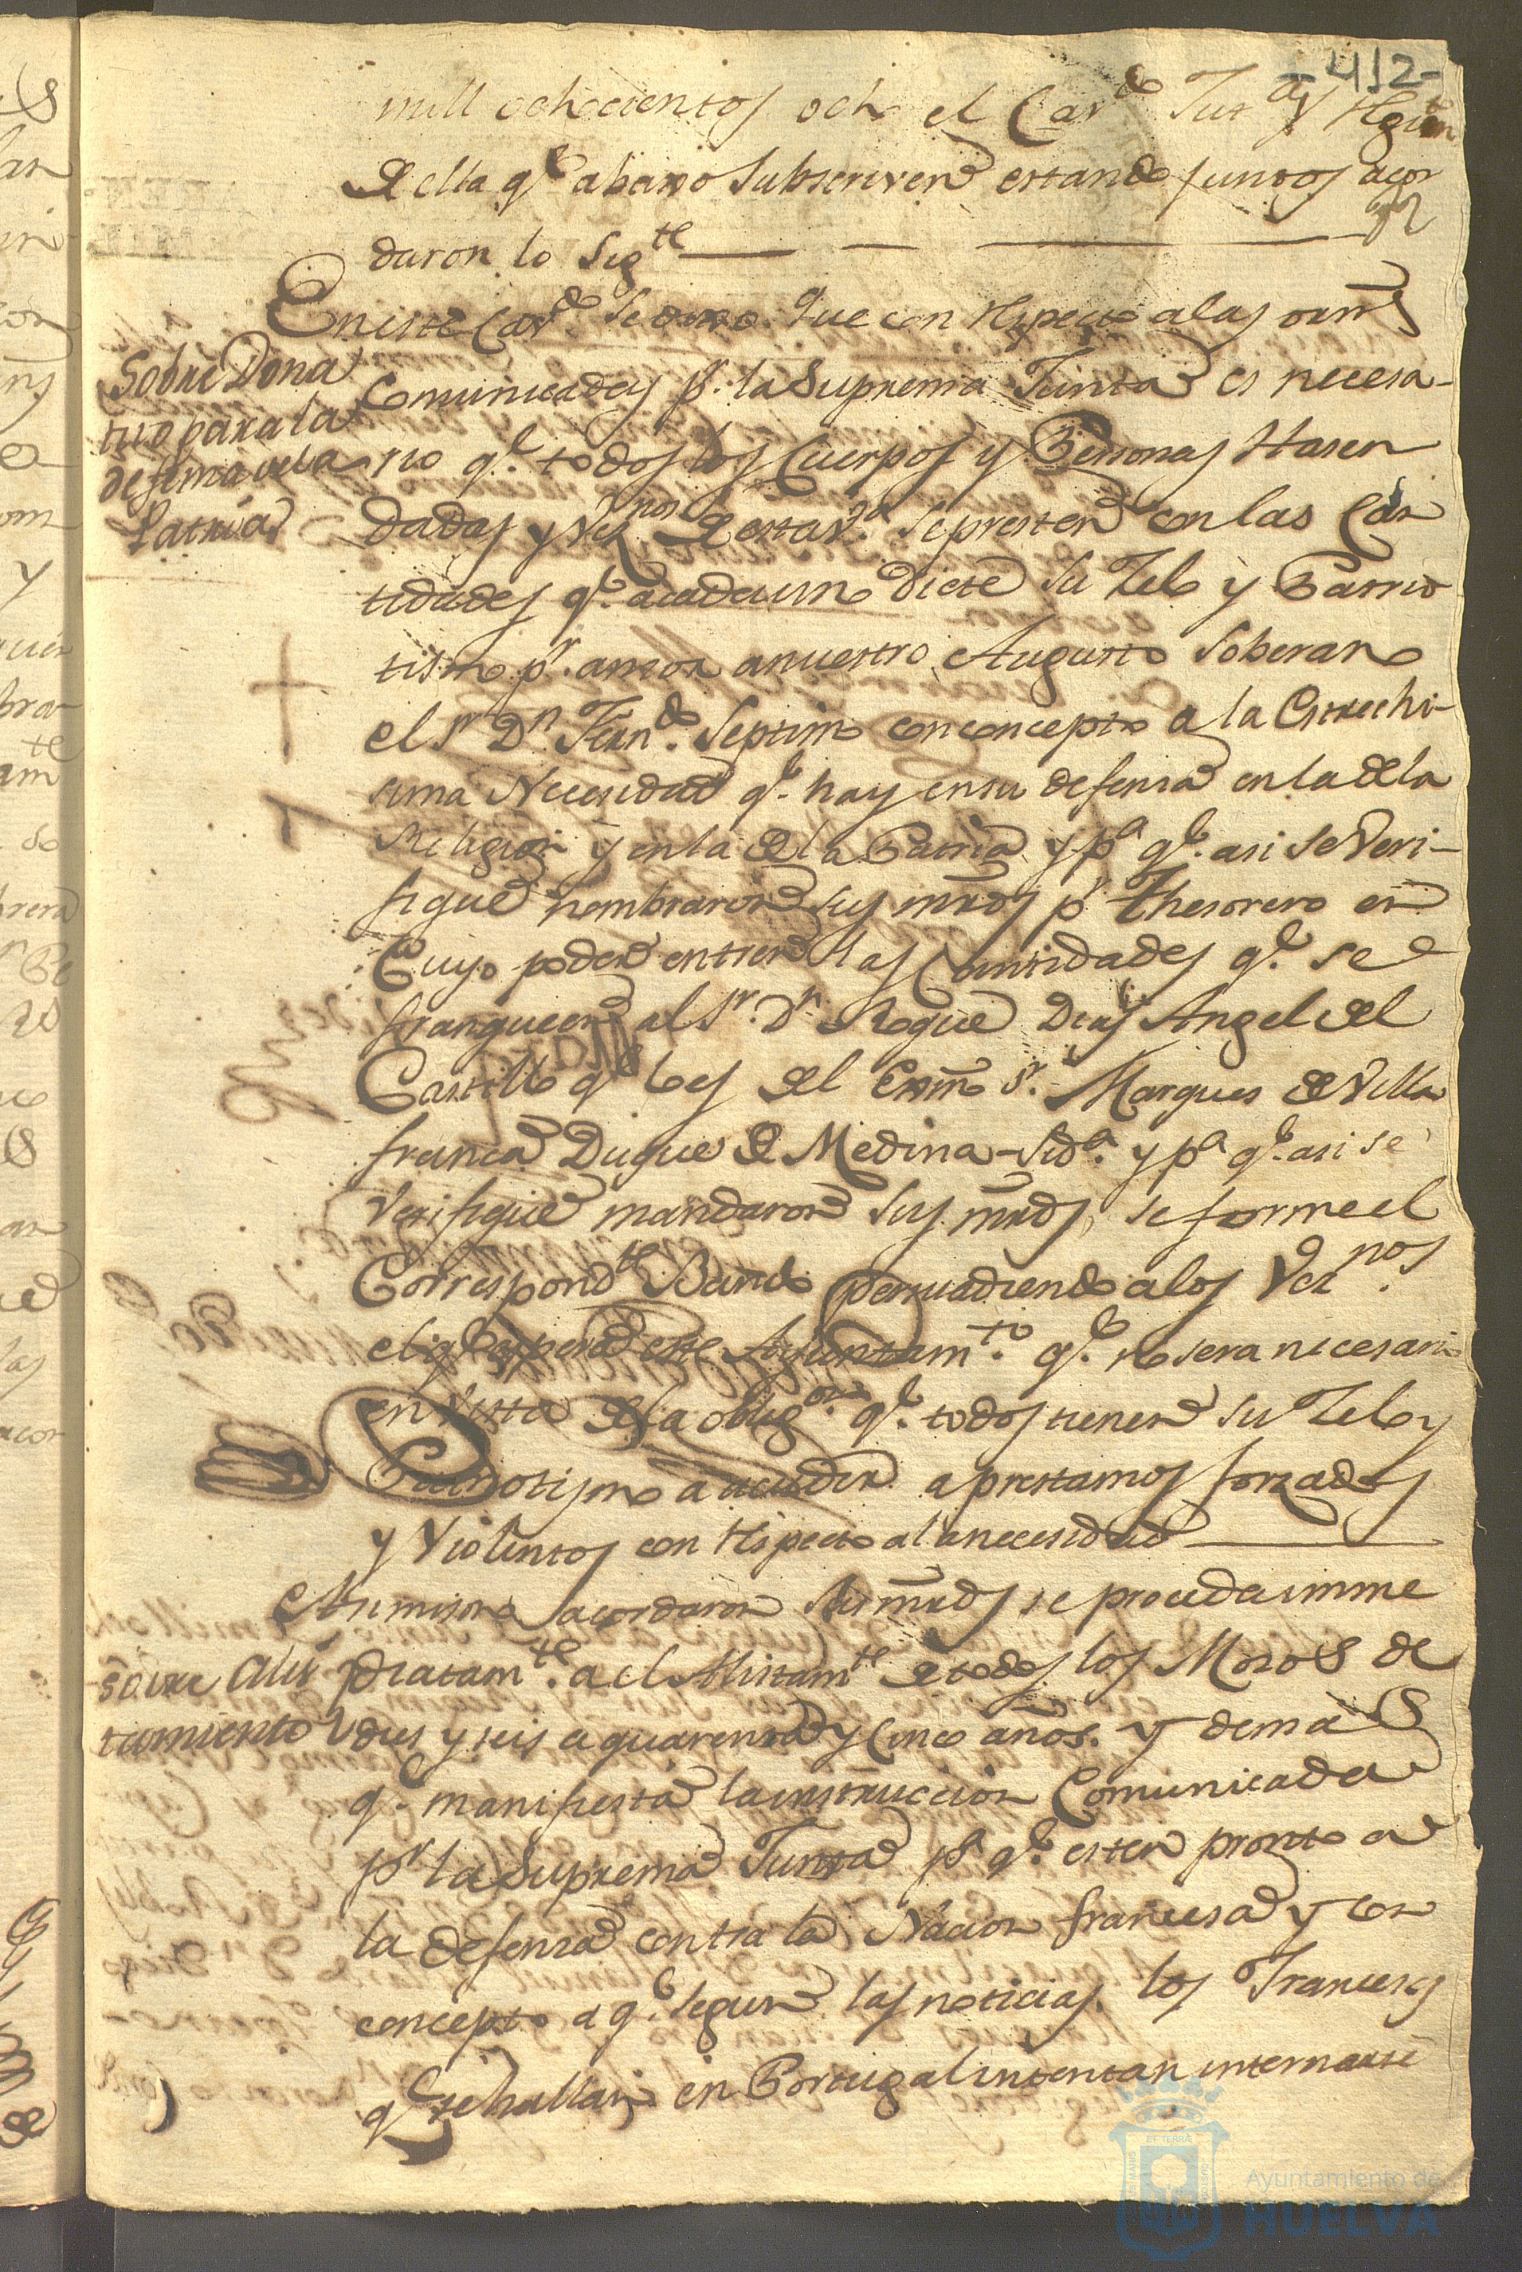 412-
mill ochocientos ocho el Cav.do Just.a y Regim.to
de ella q.e abaxo Subscriven estando juntos acor
daron lo Sig.te
En este Cav.do Se dixo. Que con respecto a las orn.s
Sobre Dona
tivo para la
defensa de la
Patria
Comunicadas p.r la Suprema Junta es necesa-
rio q.e todos los Cuerpos y Personas Hasen
dadas y Vez.nos de esta V.a se presten con las Can
tidades q.e a cada uno dicte su Zelo y Patrio
tismo p.r amor a nuestro Augusto Soberano
el S.r D.n Fern.do Septimo con concepto a la Estrechi-
sima Necesidad q.e hay en su defensa en la de la
Religion y en la de la Patria y p.a q.e asi se Veri-
fique nombraron sus mrds p.r Thesorero en
Cuyo poder entren las Cantidades q.e se
franqueen al S.r D.n Roque Dias Angel del
Castillo q.e lo es del Exmo S.r Marques de Villa
franca Duque de Medina-Sid.a y p.a q.e asi se
Verifique mandaron sus mrds, se forme el
Correspond.te Bando persuadiendo a los Vez.nos
el q.e espera este Ayuntam.to q.e no sera necesario
en Vista de la oblig.on q.e todos tienen su Zelo y
Patriotismo a acudir a prestamos forzados
y Violentos con respecto a la necesidad
Asimismo acordaron sus mrds se proceda imme
sobre Alis
tamiento
diatam.te a el Alistam.te de todos los Mozos de
dies y seis a quarenta y Cinco años. y demas
q.e manifiesta la instruccion Comunicada
p.r la Suprema Junta p.a q.e esten pronto a
la defensa contra la Nacion francesa y con
concepto a q.e segun las noticias los Franceses
q.e se hallan en Portugal intentan internarse
Ayuntamiento de
HUELVA